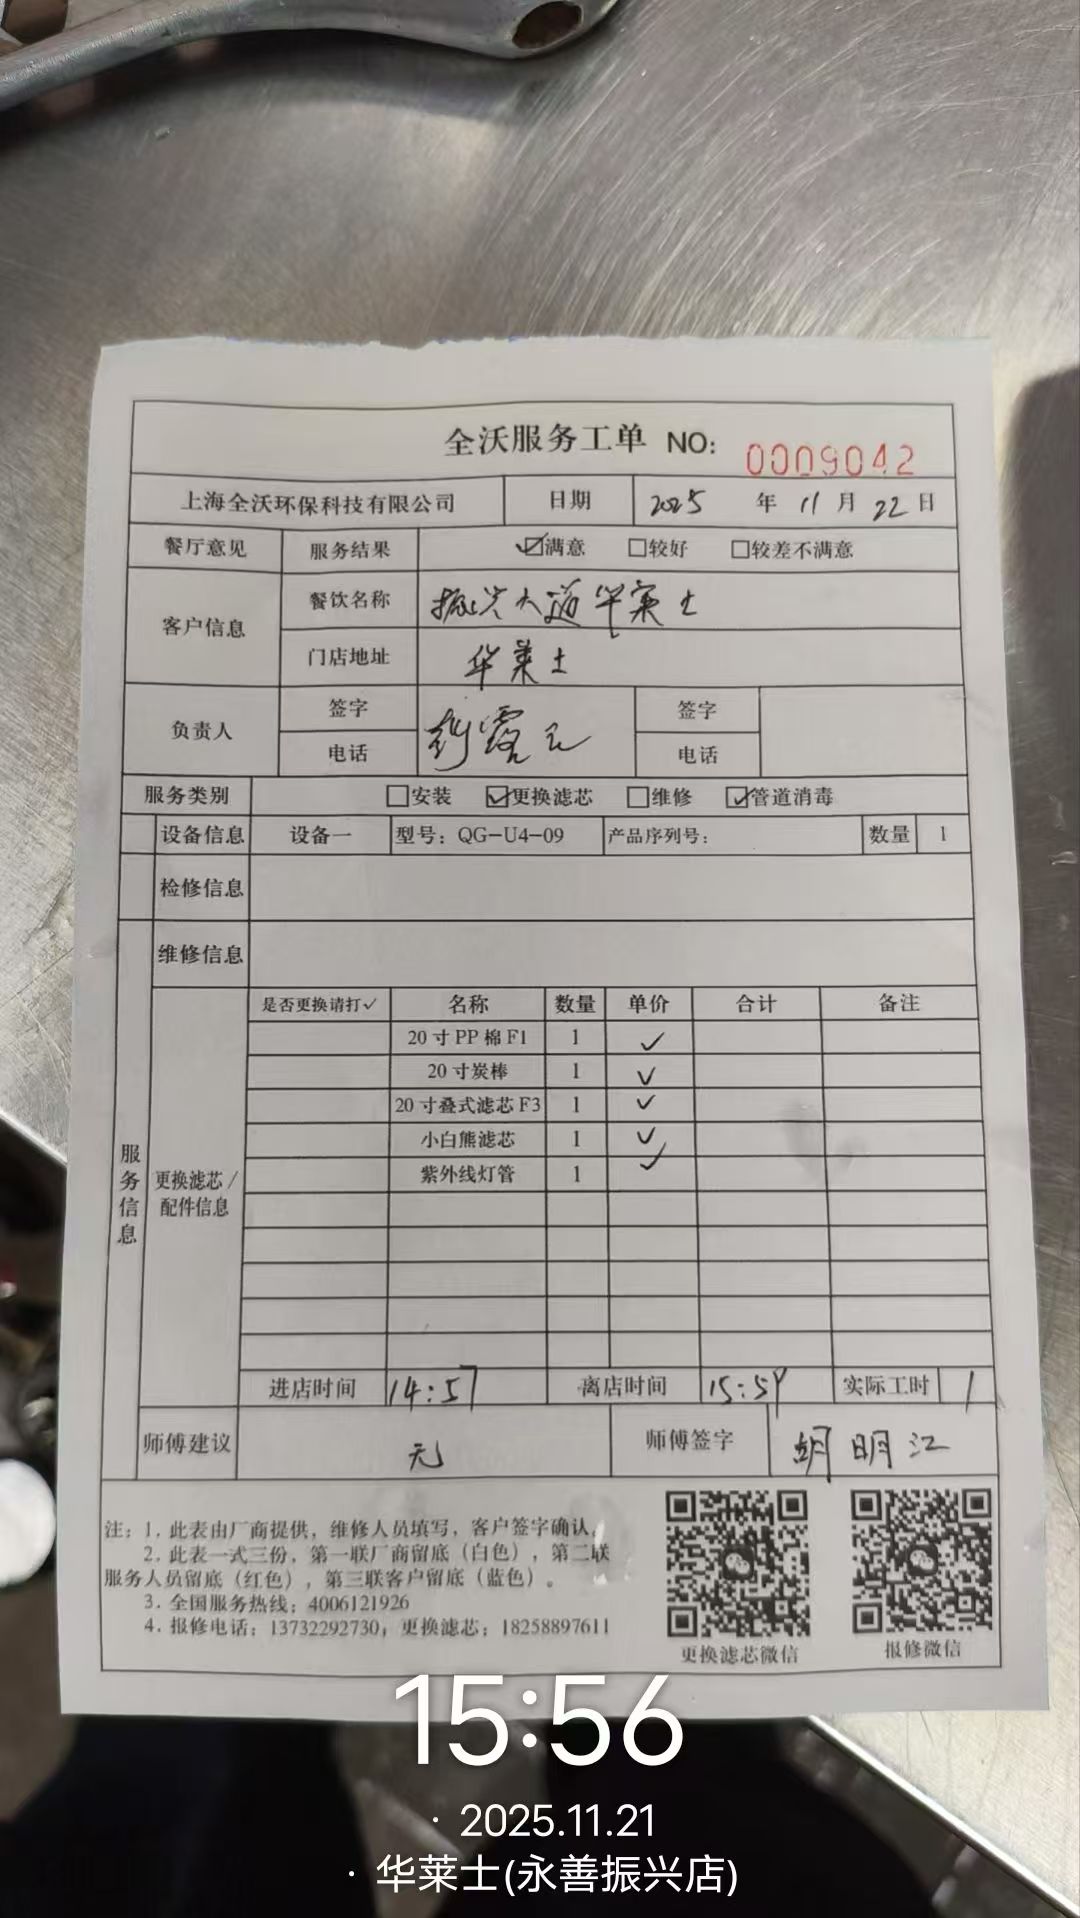 全沃服务工单 NO: 0009042
上海全沃环保科技有限公司 日期 2025 年 11 月 22 日
餐厅意见 服务结果 ☑满意 □较好 □较差不满意
客户信息 餐饮名称 振兴大道华莱士
门店地址 华莱士
负责人 签字 签字
电话 电话
服务类别 □安装 ☑更换滤芯 □维修 ☑管道消毒
设备信息 设备一 型号：QG-U4-09 产品序列号： 数量 1
检修信息
维修信息
服务信息
更换滤芯/配件信息
是否更换请打✓ 名称 数量 单价 合计 备注
20寸PP棉F1 1 ✓
20寸炭棒 1 ✓
20寸叠式滤芯F3 1 ✓
小白熊滤芯 1 ✓
紫外线灯管 1 ✓
进店时间 14:57 离店时间 15:59 实际工时 1
师傅建议 无 师傅签字 胡明江
注：1. 此表由厂商提供，维修人员填写，客户签字确认。
2. 此表一式三份，第一联厂商留底（白色），第二联
服务人员留底（红色），第三联客户留底（蓝色）。
3. 全国服务热线：4006121926
4. 报修电话：13732292730，更换滤芯：18258897611
更换滤芯微信 报修微信
15:56
· 2025.11.21
· 华莱士(永善振兴店)